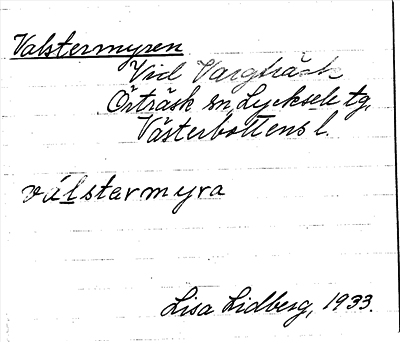 Valstermyren
Vid Vargträsk
Örträsk sn, Lycksele tg,
Västerbottens l.
válstarmyra
Lisa Lidberg, 1933.